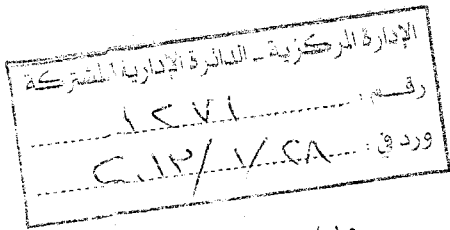 الإدارة المركزية - الدائرة الإدارية المشتركة
رقم : ١٢٧١
ورد في : ٢٠١٣/١/٢٨